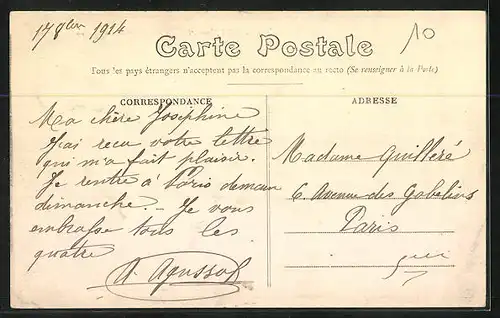 17 8bre 1914
10
Carte Postale
Tous les pays étrangers n'acceptent pas la correspondance au recto (Se renseigner à la Poste)
CORRESPONDANCE
Ma chère Joséphine
J'ai reçu votre lettre
qui m'a fait plaisir.
Je rentre à Paris demain
dimanche - Je vous
embrasse tous les
quatre
ADRESSE
Madame Guilleré
6. Avenue des Gobelins
Paris